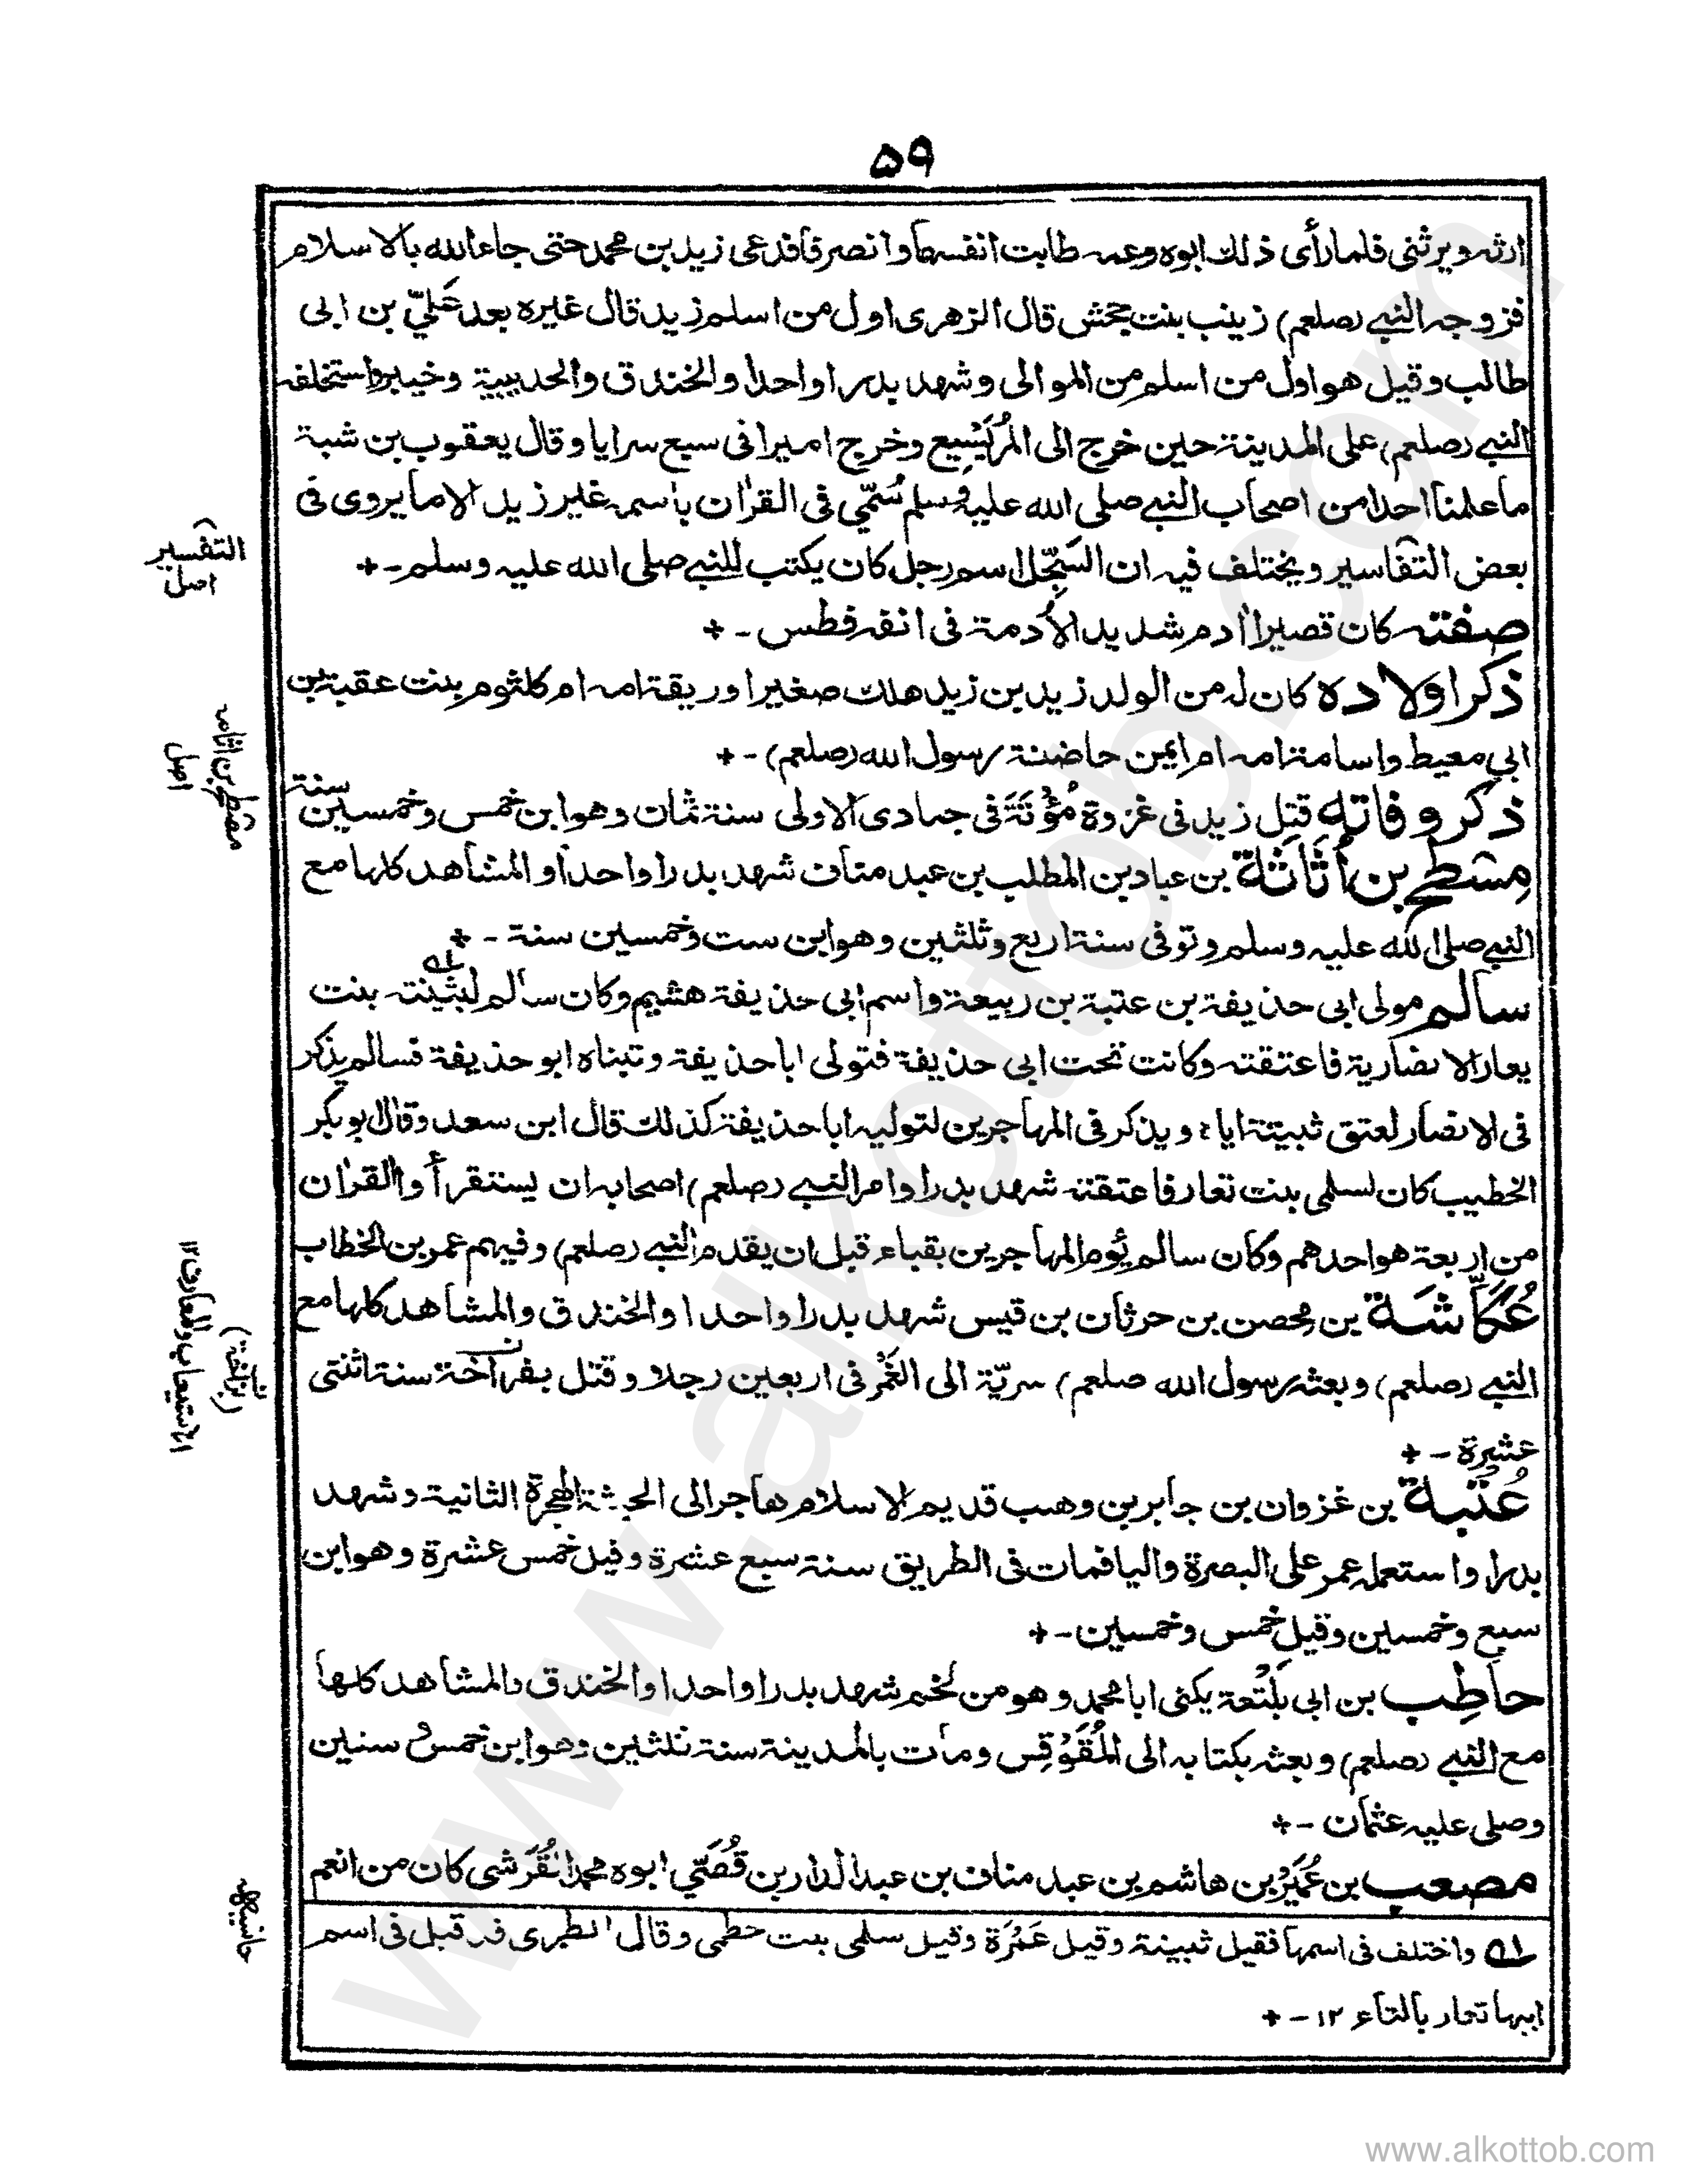 ۵۹
ارثه ويرثني فلما رأى ذلك ابوه وعمه طابت انفسهما وانصرفا فدعى زيد بن محمد حتى جاء الله بالاسلام
فزوجه النبي (صلعم) زينب بنت جحش قال الزهرى اول من اسلم زيد قال غيره بعد عَليّ بن ابى
طالب وقيل هو اول من اسلم من الموالى وشهد بدرا واحدا والخندق والحديبية وخيبر واستخلفه
النبي (صلعم) على المدينة حين خرج الى المُرَيْسِيع وخرج اميرا فى سبع سرايا وقال يعقوب بن شبة
ما علمنا احدا من اصحاب النبي صلى الله عليه وسلم سُمّي فى القرآن باسمه غير زيد الا ما يروى فى
بعض التفاسير ويختلف فيه ان السّجِلّ اسم رجل كان يكتب للنبي صلى الله عليه وسلم -+
صفته كان قصيرا آدم شديد الأدمة فى انفه فطس -+
ذكر اولاده كان له من الولد زيد بن زيد هلك صغيرا ورقية امه ام كلثوم بنت عقبة بن
ابي معيط واسامة امه ام ايمن حاضنة رسول الله (صلعم) -+
ذكر وفاته قتل زيد فى غزوة مُؤْتَةَ فى جمادى الاولى سنة ثمان وهو ابن خمس وخمسين سنة
مِسْطح بن أُثَاثَة بن عباد بن المطلب بن عبد مناف شهد بدرا واحدا والمشاهد كلها مع
النبي صلى الله عليه وسلم وتوفى سنة اربع وثلثين وهو ابن ست وخمسين سنة -+
سالم مولى ابى حذيفة بن عتبة بن ربيعة واسم ابى حذيفة هشيم وكان سالم لبثينته ؂۱ بنت
يعار الانصارية فاعتقته وكانت تحت ابى حذيفة فتولى ابا حذيفة وتبناه ابو حذيفة فسالم يذكر
فى الانصار لعتق ثبيتة اياه ويذكر فى المهاجرين لتوليه ابا حذيفة كذلك قال ابن سعد وقال ابو بكر
الخطيب كان لسلمى بنت تعار فاعتقته شهد بدرا وامر النبي (صلعم) اصحابه ان يستقرأوا القرآن
من اربعة هو احدهم وكان سالم يؤم المهاجرين بقباء قبل ان يقدم النبي (صلعم) وفيهم عمر بن الخطاب
عُكّاشَة بن محصن بن حرثان بن قيس شهد بدرا واحدا والخندق والمشاهد كلها مع
النبي (صلعم) وبعثه رسول الله صلعم) سريّة الى الغَمْر فى اربعين رجلا وقتل ببفراخة سنة اثنتى
عشرة -+
عُتْبة بن غزوان بن جابر بن وهب قديم الاسلام هاجر الى الحبشة الهجرة الثانية وشهد
بدرا واستعمله عمر على البصرة واليا فمات فى الطريق سنة سبع عشرة وقيل خمس عشرة وهو ابن
سبع وخمسين وقيل خمس وخمسين -+
حاطِب بن ابى بَلْتَعة يكنى ابا محمد وهو من لخم شهد بدرا واحدا والخندق والمشاهد كلها
مع النبي (صلعم) وبعثه بكتابه الى المُقَوْقِس ومات بالمدينة سنة ثلثين وهو ابن خمس و سنين
وصلى عليه عثمان -+
مصعب بن عُمَيْر بن هاشم بن عبد مناف بن عبد الدار بن قُصَيّ ابوه محمد القُرَشى كان من انعم
؂۱ واختلف فى اسمها فقيل ثبينة وقيل عَمْرَة وقيل سلمى بنت حطمى وقال الطبرى قد قيل فى اسم
ابيها تعار بالتاء ۱۲ -+
التفسير)
اصل
مسطح بن اثاثه
اصل
(بزاخة)
الاستيعاب والمعارف ۱۲
حاشيه
www.alkottob.com
www.alkottob.com